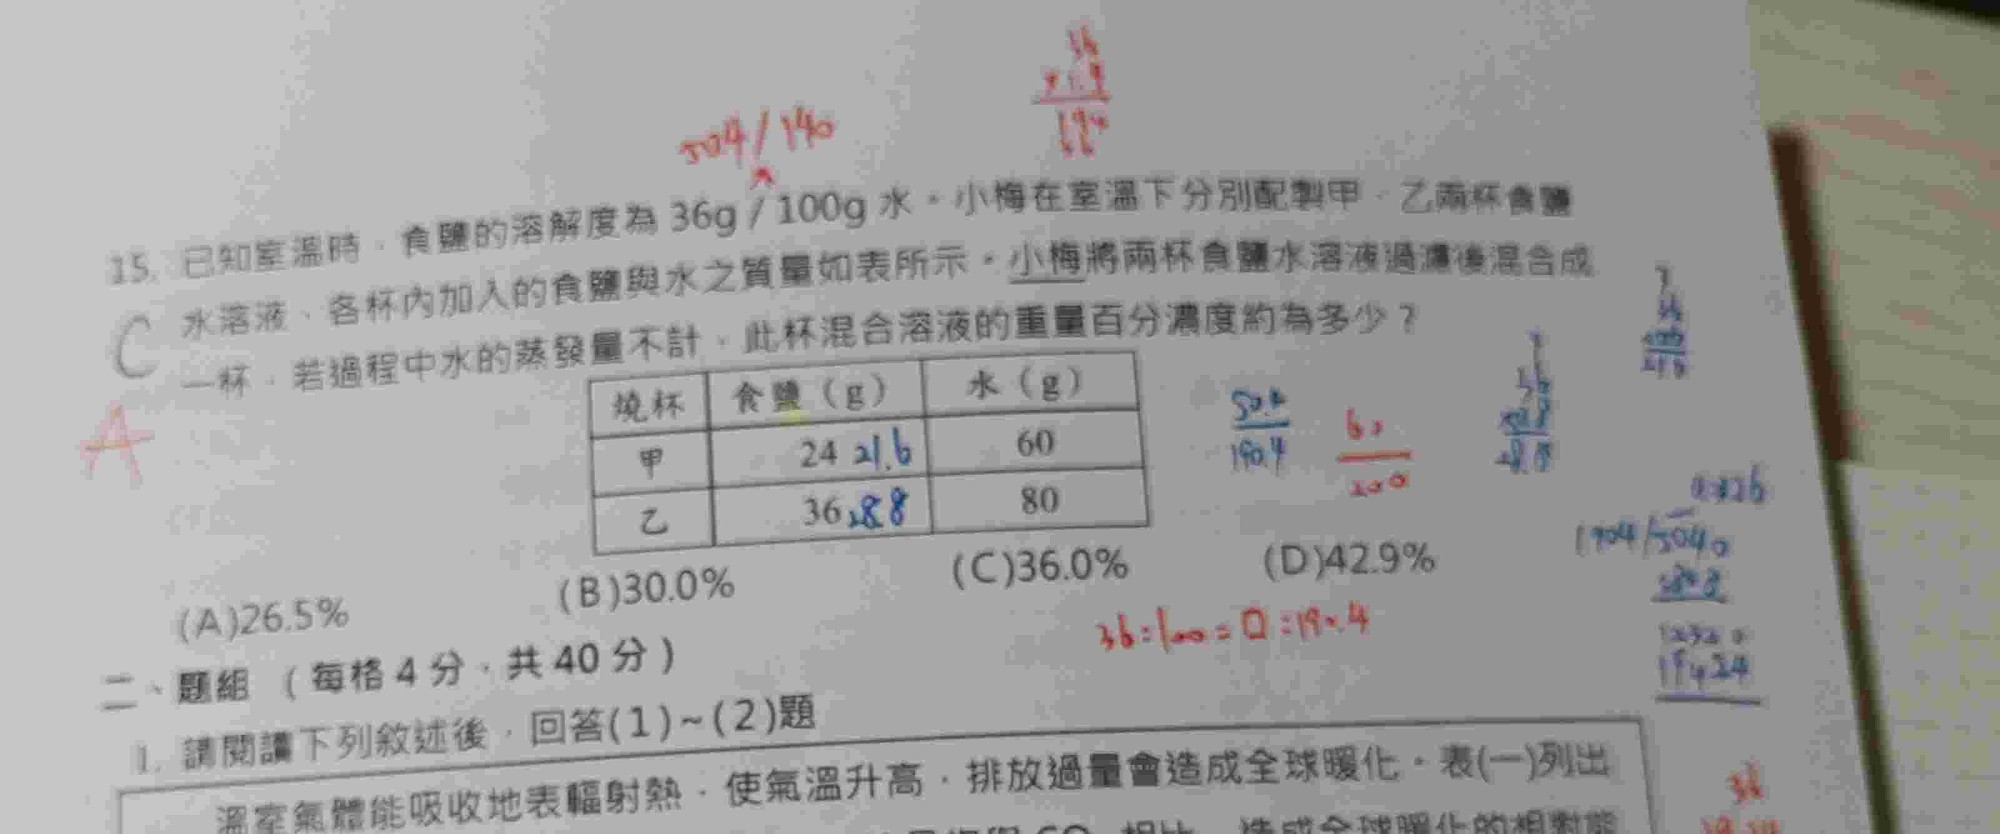 504/140
15. 已知室溫時，食鹽的溶解度為 36g / 100g 水。小梅在室溫下分別配製甲、乙兩杯食鹽
C 水溶液、各杯內加入的食鹽與水之質量如表所示。小梅將兩杯食鹽水溶液過濾後混合成
一杯，若過程中水的蒸發量不計，此杯混合溶液的重量百分濃度約為多少？
A
燒杯 食鹽（g） 水（g）
甲 24 21.6 60
乙 36 28.8 80
50.4
190.4
60
200
(A)26.5% (B)30.0% (C)36.0% (D)42.9%
36:100=口:190.4
二、題組 （每格 4 分，共 40 分）
1. 請閱讀下列敘述後，回答(1)~(2)題
溫室氣體能吸收地表輻射熱，使氣溫升高，排放過量會造成全球暖化。表(一)列出
相比，造成全球暖化的相對能